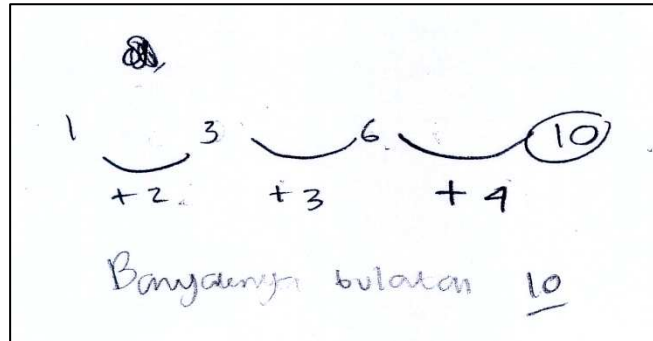 1 3 6 10
+2 +3 +4
Banyaknya bulatan 10